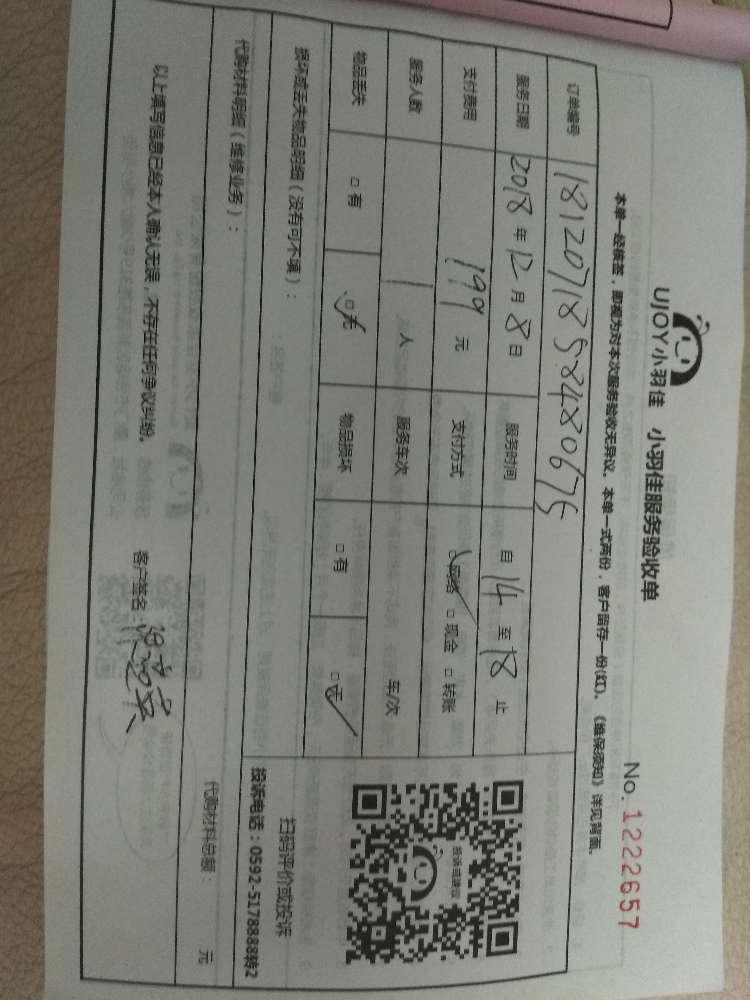 UJOY小羽佳 小羽佳服务验收单
No. 1222657
本单一经核签，即视为对本次服务验收无异议。本单一式两份，客户留存一份(红)。《维保须知》详见背面。
订单编号 1812071859480675
服务日期 2018 年 12 月 8 日 服务时间 自 14 至 18 止
支付费用 199 元 支付方式 □网络 □现金 □转账
服务人数 1 人 服务车次 车/次
物品丢失 □有 □无 物品损坏 □有 □无
损坏或丢失物品明细（没有可不填）：
投诉建议
扫码评价或投诉
投诉电话：0592-5178888转2
代购材料明细（维修业务）：
代购材料总额： 元
以上填写信息已经本人确认无误，不存在任何争议纠纷。
客户签名：